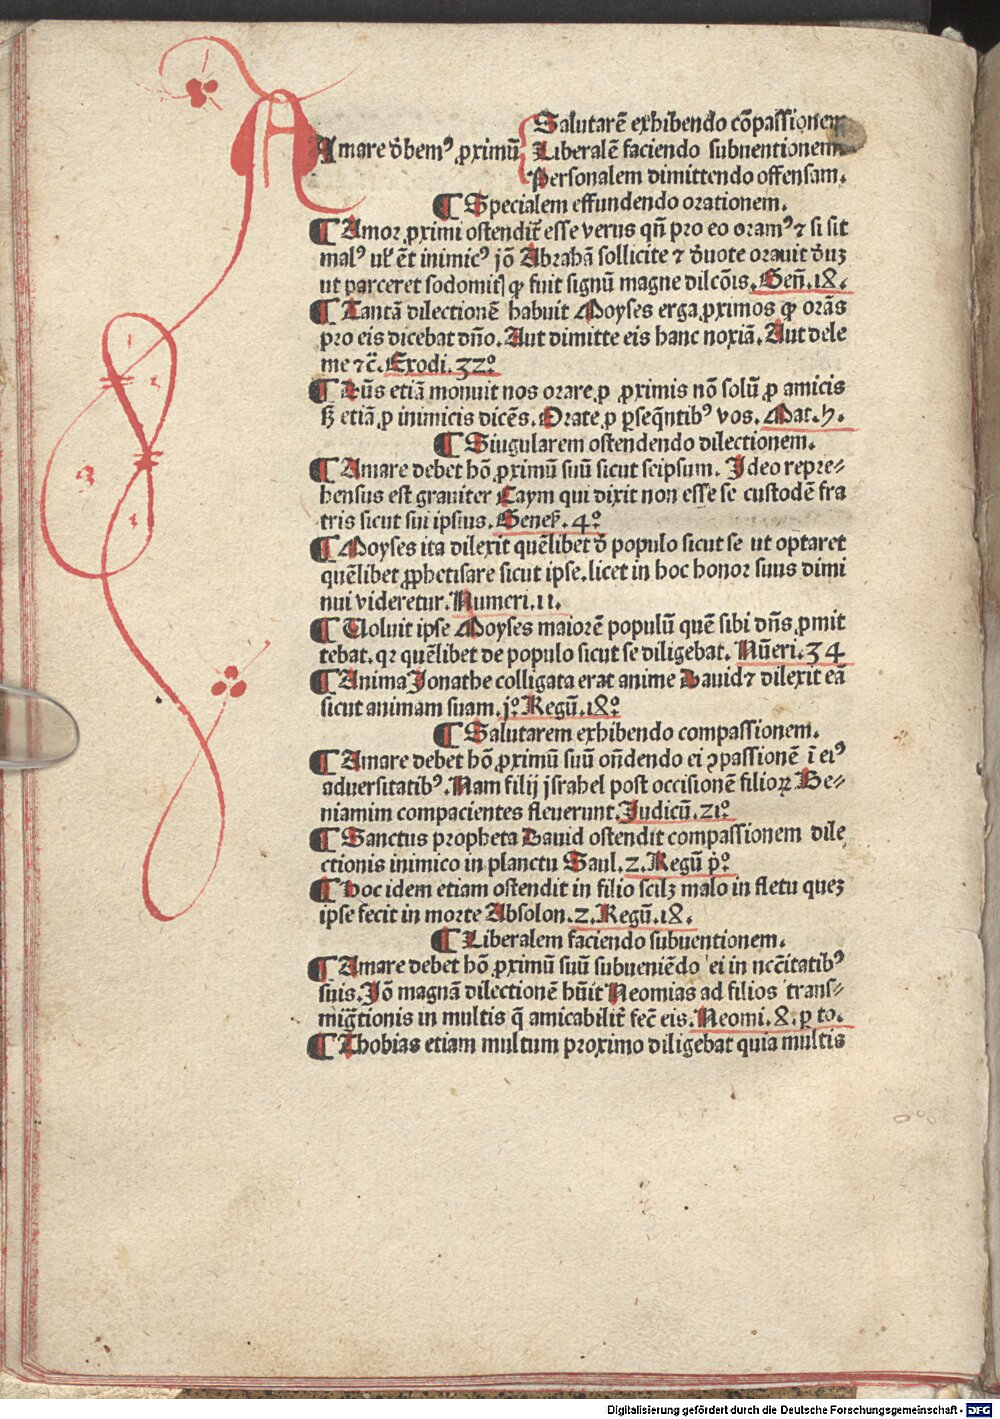 Salutarē exhibendo cōpassionem
Amare dʼbemꝰ ꝓximū Liberalē faciendo subuentionem
Personalem dimittendo offensam.
¶ Specialem effundendo orationem.
¶ Amor ꝓximi ostendit̄ esse verus qn̄ pro eo oramꝰ ⁊ si sit
malꝰ ul̓ ēt inimicꝰ jō Abrahā sollicite ⁊ dʼuote orauit dʼuꝫ
ut parceret sodomitꝭ qꝛ fuit signū magne dilcōis. Gen̄. 18.
¶ Tantā dilectionē habuit Moyses erga ꝓximos qꝛ orās
pro eis dicebat dn̄o. Aut dimitte eis hanc noxiā. Aut dele
me ⁊c̄. Exodi. 32°
¶ Dn̄s etiā monuit nos orare ꝓ ꝓximis nō solū ꝓ amicis
sꝫ etiā ꝓ inimicis dicēs. Orate ꝓ ꝑseq̄ntibꝰ vos. Mat. 5.
¶ Siugularem ostendendo dilectionem.
¶ Amare debet hō ꝓximū suū sicut seipsum. Ideo repre⸗
hensus est grauiter Caym qui dixit non esse se custodē fra
tris sicut sui ipsius. Genes̄. 4°
¶ Moyses ita dilexit quēlibet dʼ populo sicut se ut optaret
quēlibet ꝓphetisare sicut ipse. licet in hoc honor suus dimi
nui videretur. Numeri. 11.
¶ Uoluit ipse Moyses maiorē populū quē sibi dn̄s ꝓmit
tebat. qꝛ quēlibet de populo sicut se diligebat. Nūeri. 34
¶ Anima Jonathe colligata erat anime Dauid ⁊ dilexit eā
sicut animam suam. j° Regū. 18°
¶ Salutarem exhibendo compassionem.
¶ Amare debet hō ꝓximū suū on̄dendo ei ꝯpassionē ī eiꝰ
aduersitatibꝰ. Nam filij jsrahel post occisionē filioꝝ Be⸗
niamim compacientes fleuerunt. Judicū. 21°
¶ Sanctus propheta Dauid ostendit compassionem dile
ctionis inimico in planctu Saul. 2. Regū p̄°
¶ Hoc idem etiam ostendit in filio scilꝫ malo in fletu queꝫ
ipse fecit in morte Absolon. 2. Regū. 18.
¶ Liberalem faciendo subuentionem.
¶ Amare debet hō ꝓximū suū subueniēdo ei in ncc̄itatibꝰ
suis. Jō magnā dilectionē hūit Neomias ad filios trans⸗
mig̅tionis in multis q̄ amicabilit̄ fec̄ eis. Neomi. 8. ꝑ to.
¶ Thobias etiam multum proximo diligebat quia multis
Digitalisierung gefördert durch die Deutsche Forschungsgemeinschaft - DFG